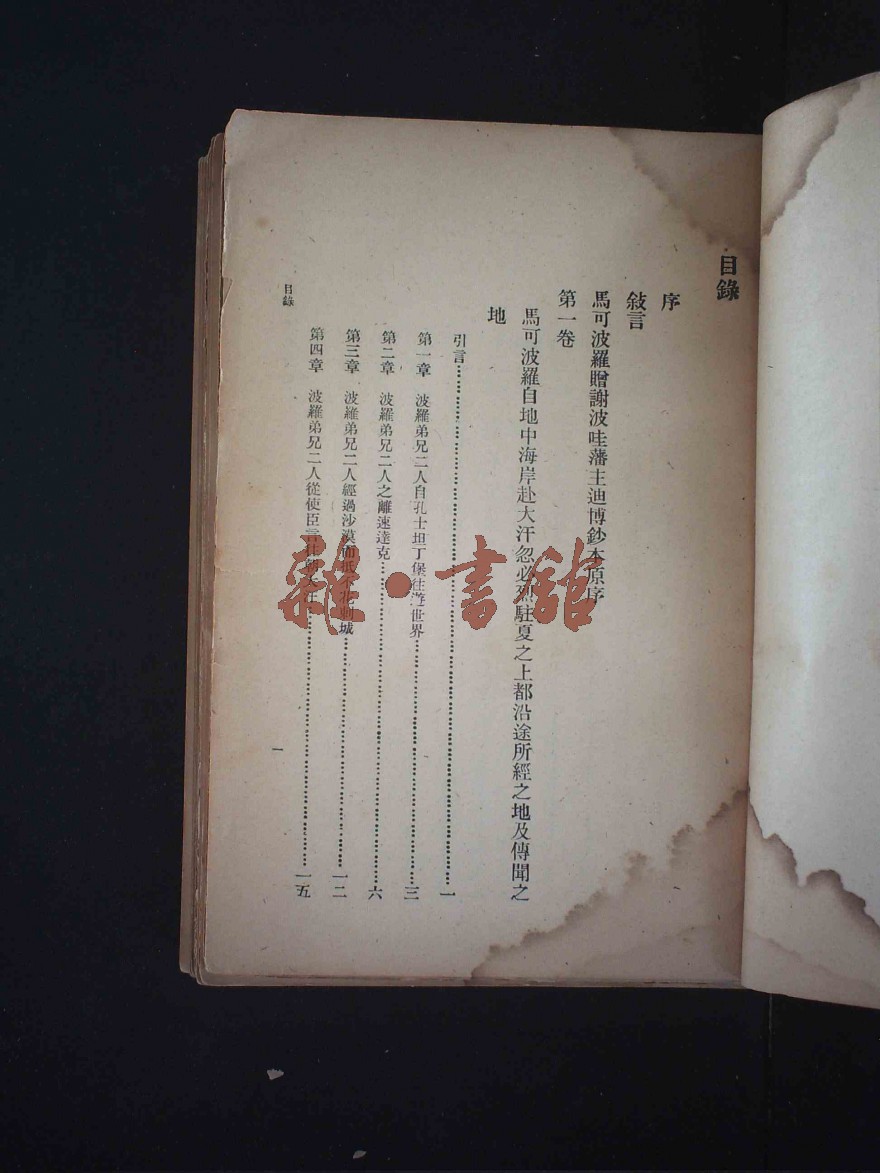 目錄
序
敍言
馬可波羅贈謝波哇藩主迪博鈔本原序
第一卷
馬可波羅自地中海岸赴大汗忽必烈駐夏之上都沿途所經之地及傳聞之
地
引言……一
第一章 波羅弟兄二人自孔士坦丁堡往遊世界……三
第二章 波羅弟兄二人之離速達克……六
第三章 波羅弟兄二人經過沙漠而抵不花剌城……一二
第四章 波羅弟兄二人從使臣言往朝大汗……一五
目錄
一
雜·書館